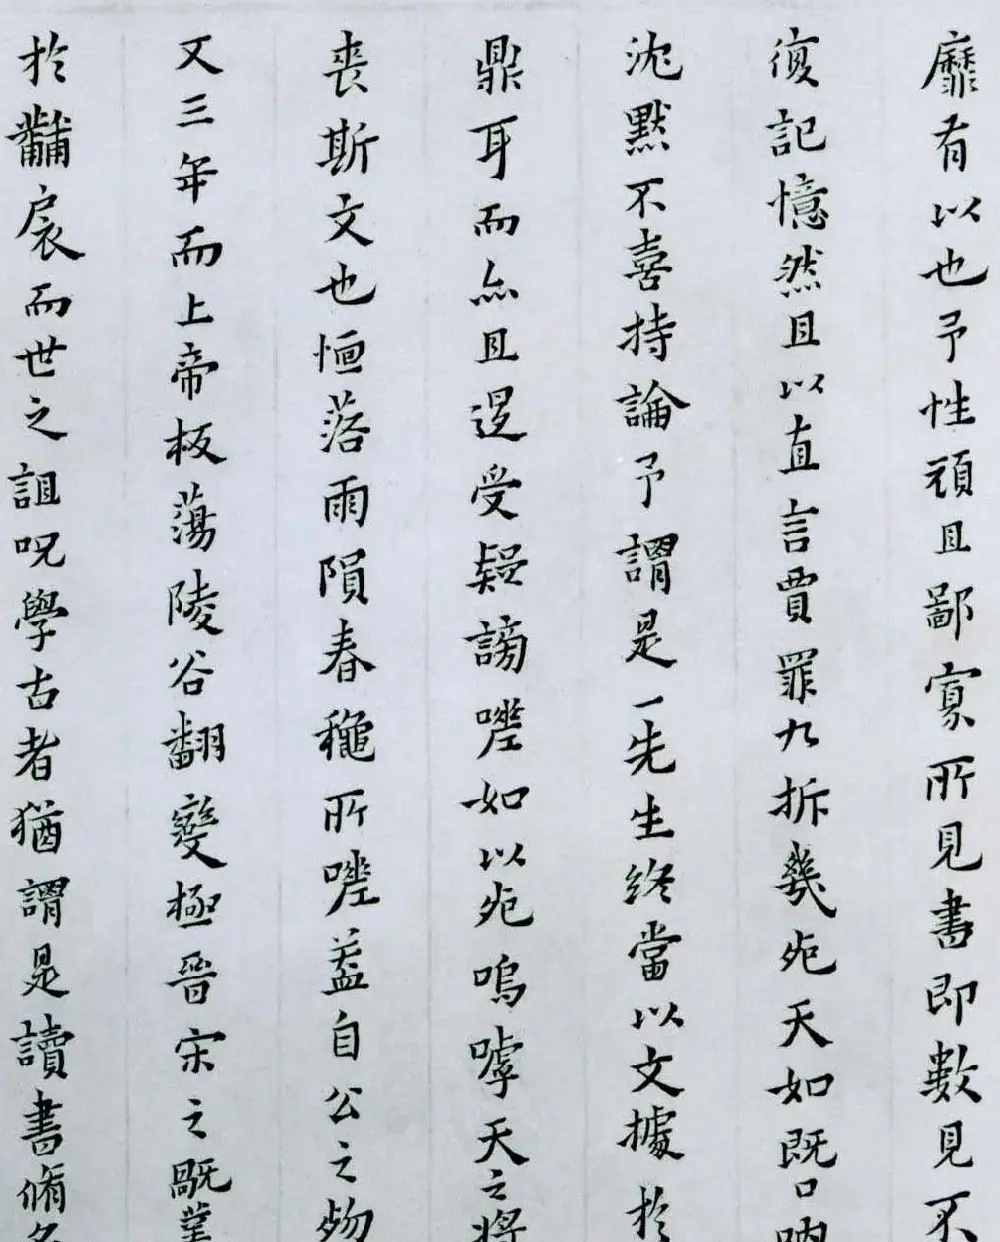 靡有以也予性頑且鄙寡所見書即數見不
復記憶然且以直言賈罪九拆幾死天如既口吶
沈默不喜持論予謂是一先生終當以文據於
鼎耳而亦且受疑謗嗟如以死嗚嘑天之將
喪斯文也恆落雨隕春穐所嗟蓋自公之歾
又三年而上帝板蕩陵谷翻變極晉宋之
於黼扆而世之詛呪學古者猶謂是讀書脩名